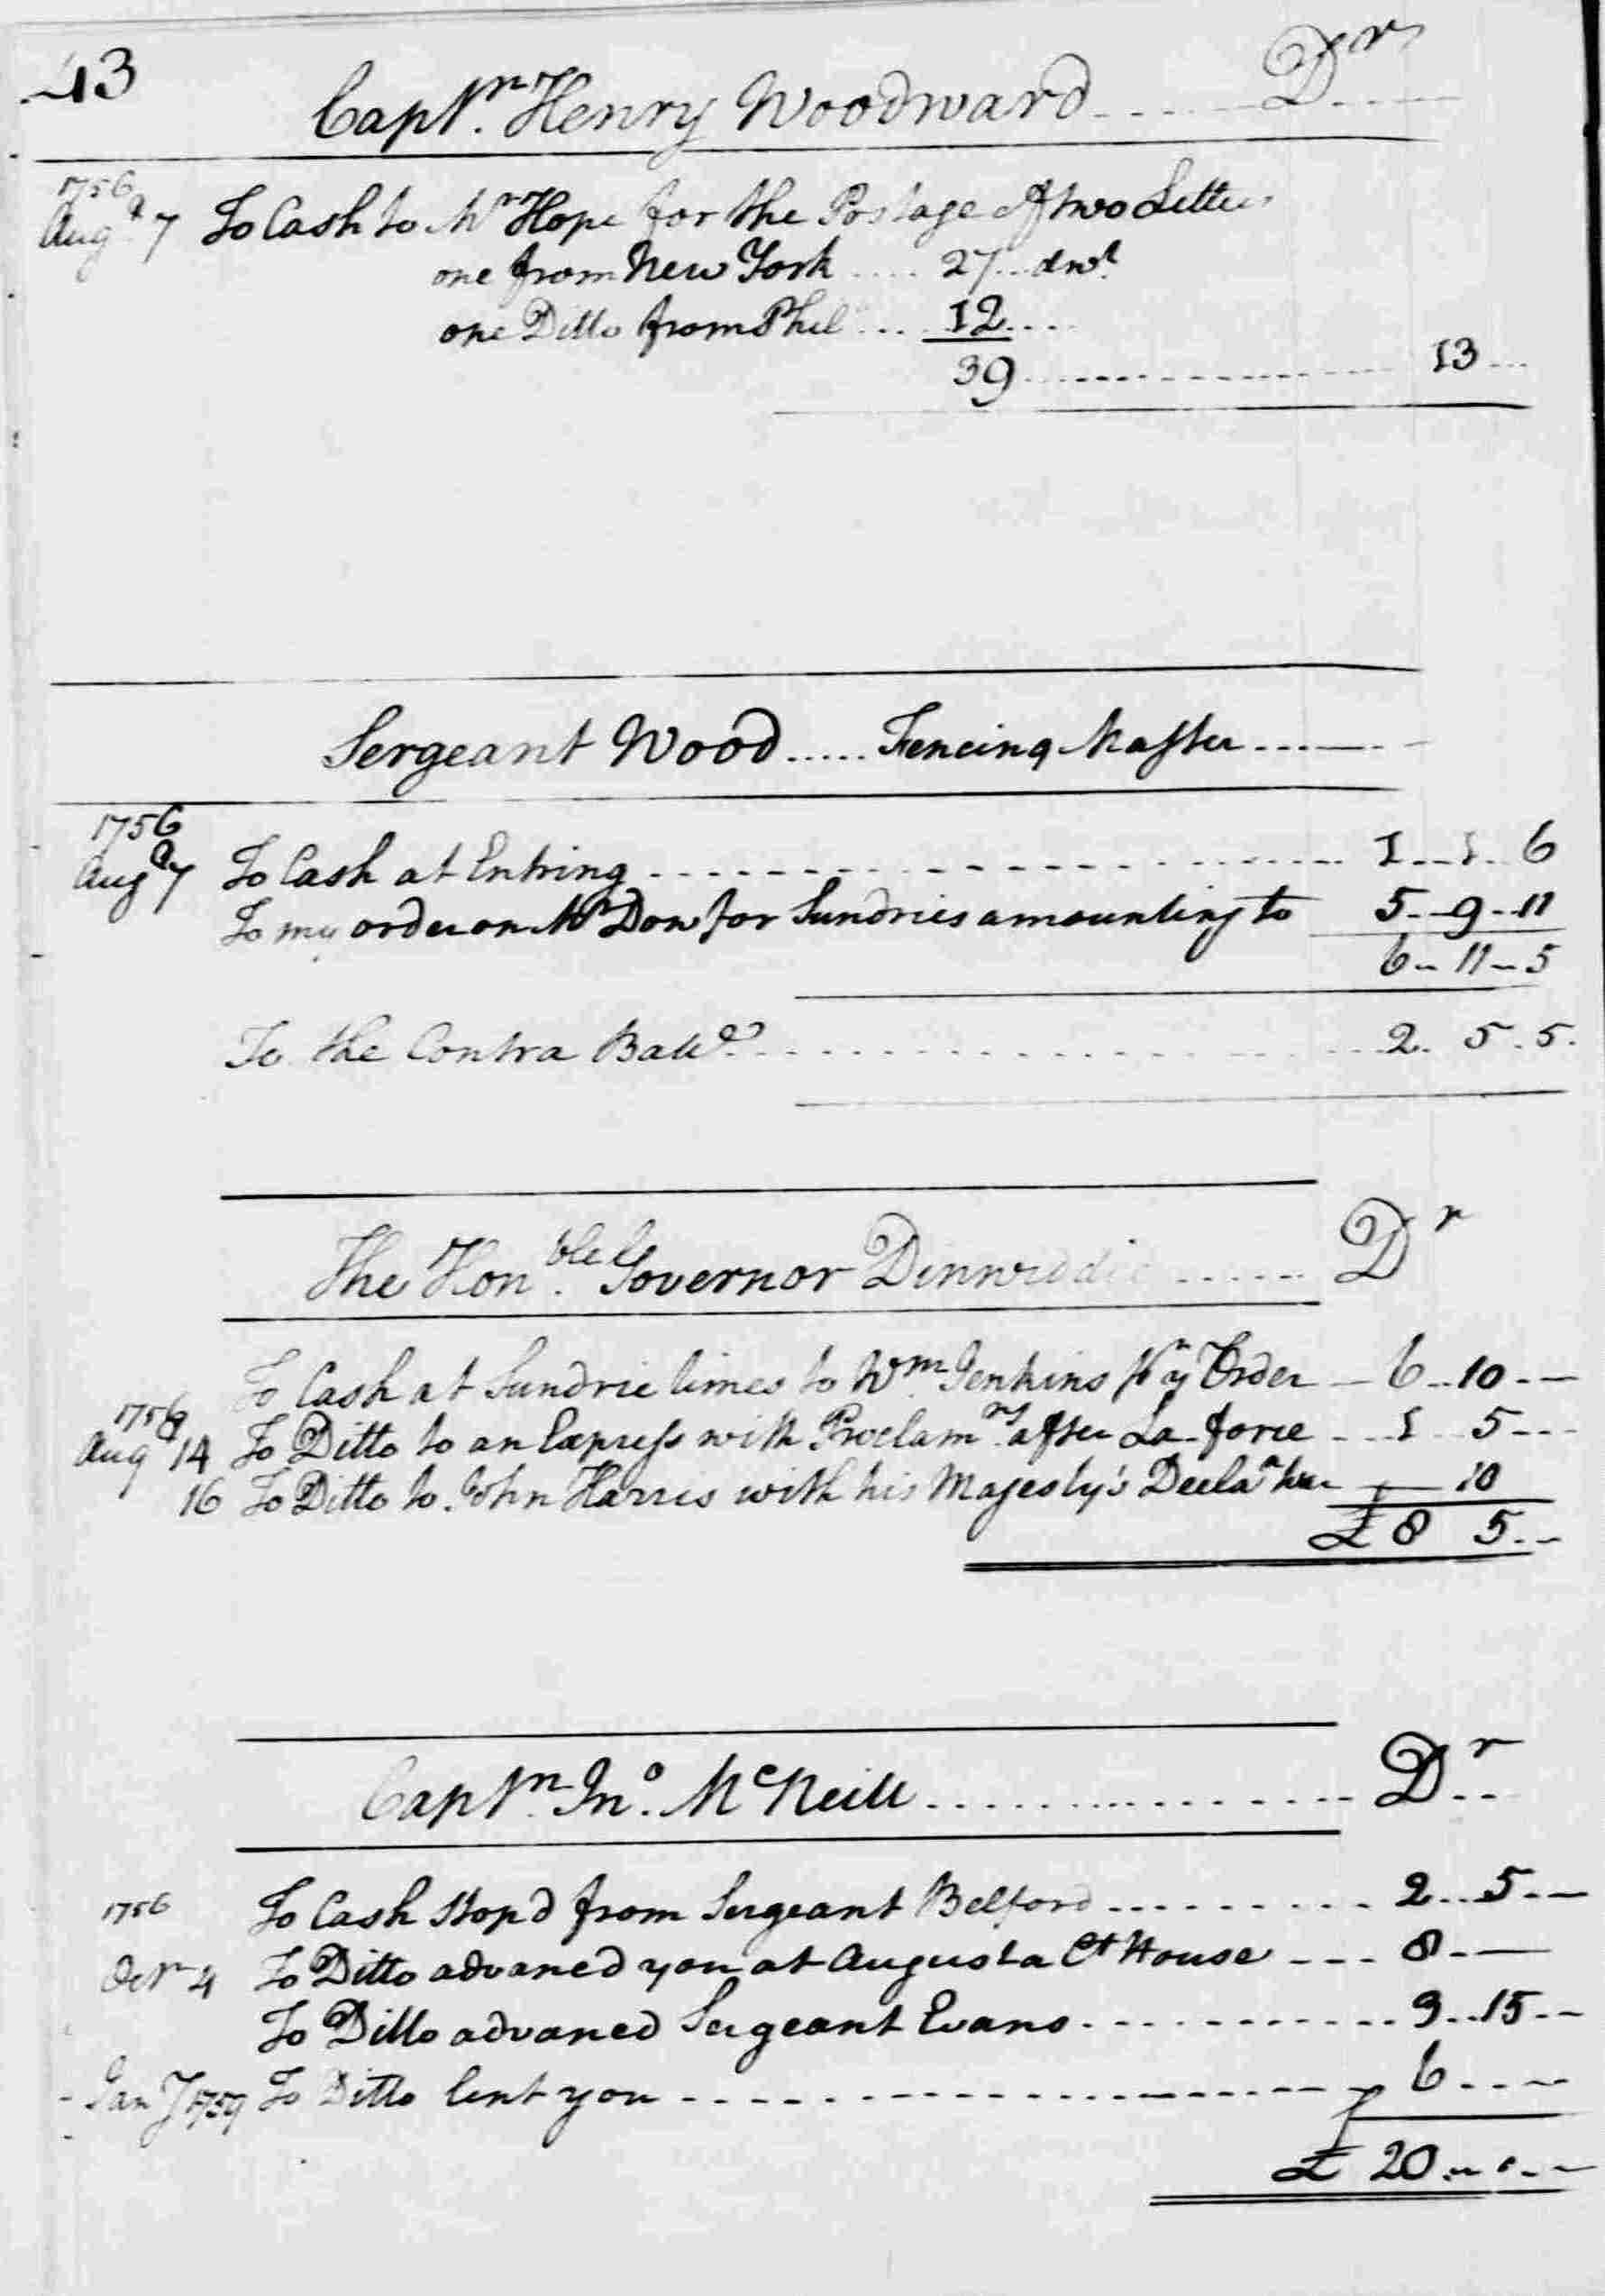 43
Captn. Henry Woodward ..... Dr
1756
Augt 7 To Cash to Mr Hope for the Postage of two Letters
one from New York .... 27 .. dwt
one Ditto from Phila .... 12 ....
39 .................... 13 ...
Sergeant Wood ..... Fencing Master .......
1756
Augt 7 To Cash at Entring .................... 1 .. 1 .. 6
To my order on Mr Dow for Sundries amounting to 5 .. 9 .. 11
6 .. 11 .. 5
To the Contra Balle .................... 2 . 5 . 5 .
The Honble. Governor Dinwiddie ...... Dr
To Cash at Sundrie times to Wm. Jenkins pr yr Order — 6 .. 10 . —
1756
Augt 14 To Ditto to an Express with Proclamns. after La-force ... 1 5 ...
16 To Ditto to John Harris with his Majesty's Declaration — 10
£ 8 5 . --
Captn. Jno. McNeill .................. Dr ..
1756 To Cash Stop'd from Sergeant Belford .......... 2 .. 5 . —
Octr 4 To Ditto advanced you at Augusta Ct House .... 8 . —
To Ditto advanced Sergeant Evans ............ 3 .. 15 . --
Jany 1759 To Ditto lent you .................... 6 ....
£ 20 .. " . --